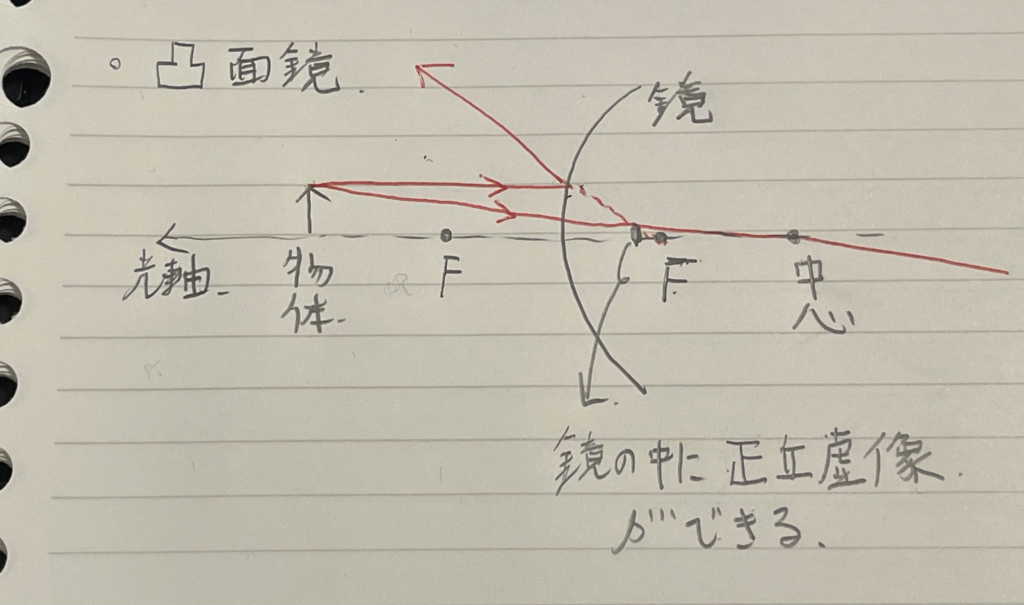 。凸面鏡.
鏡
光軸.
物体.
F
F
中心
鏡の中に正立虚像.
ができる.